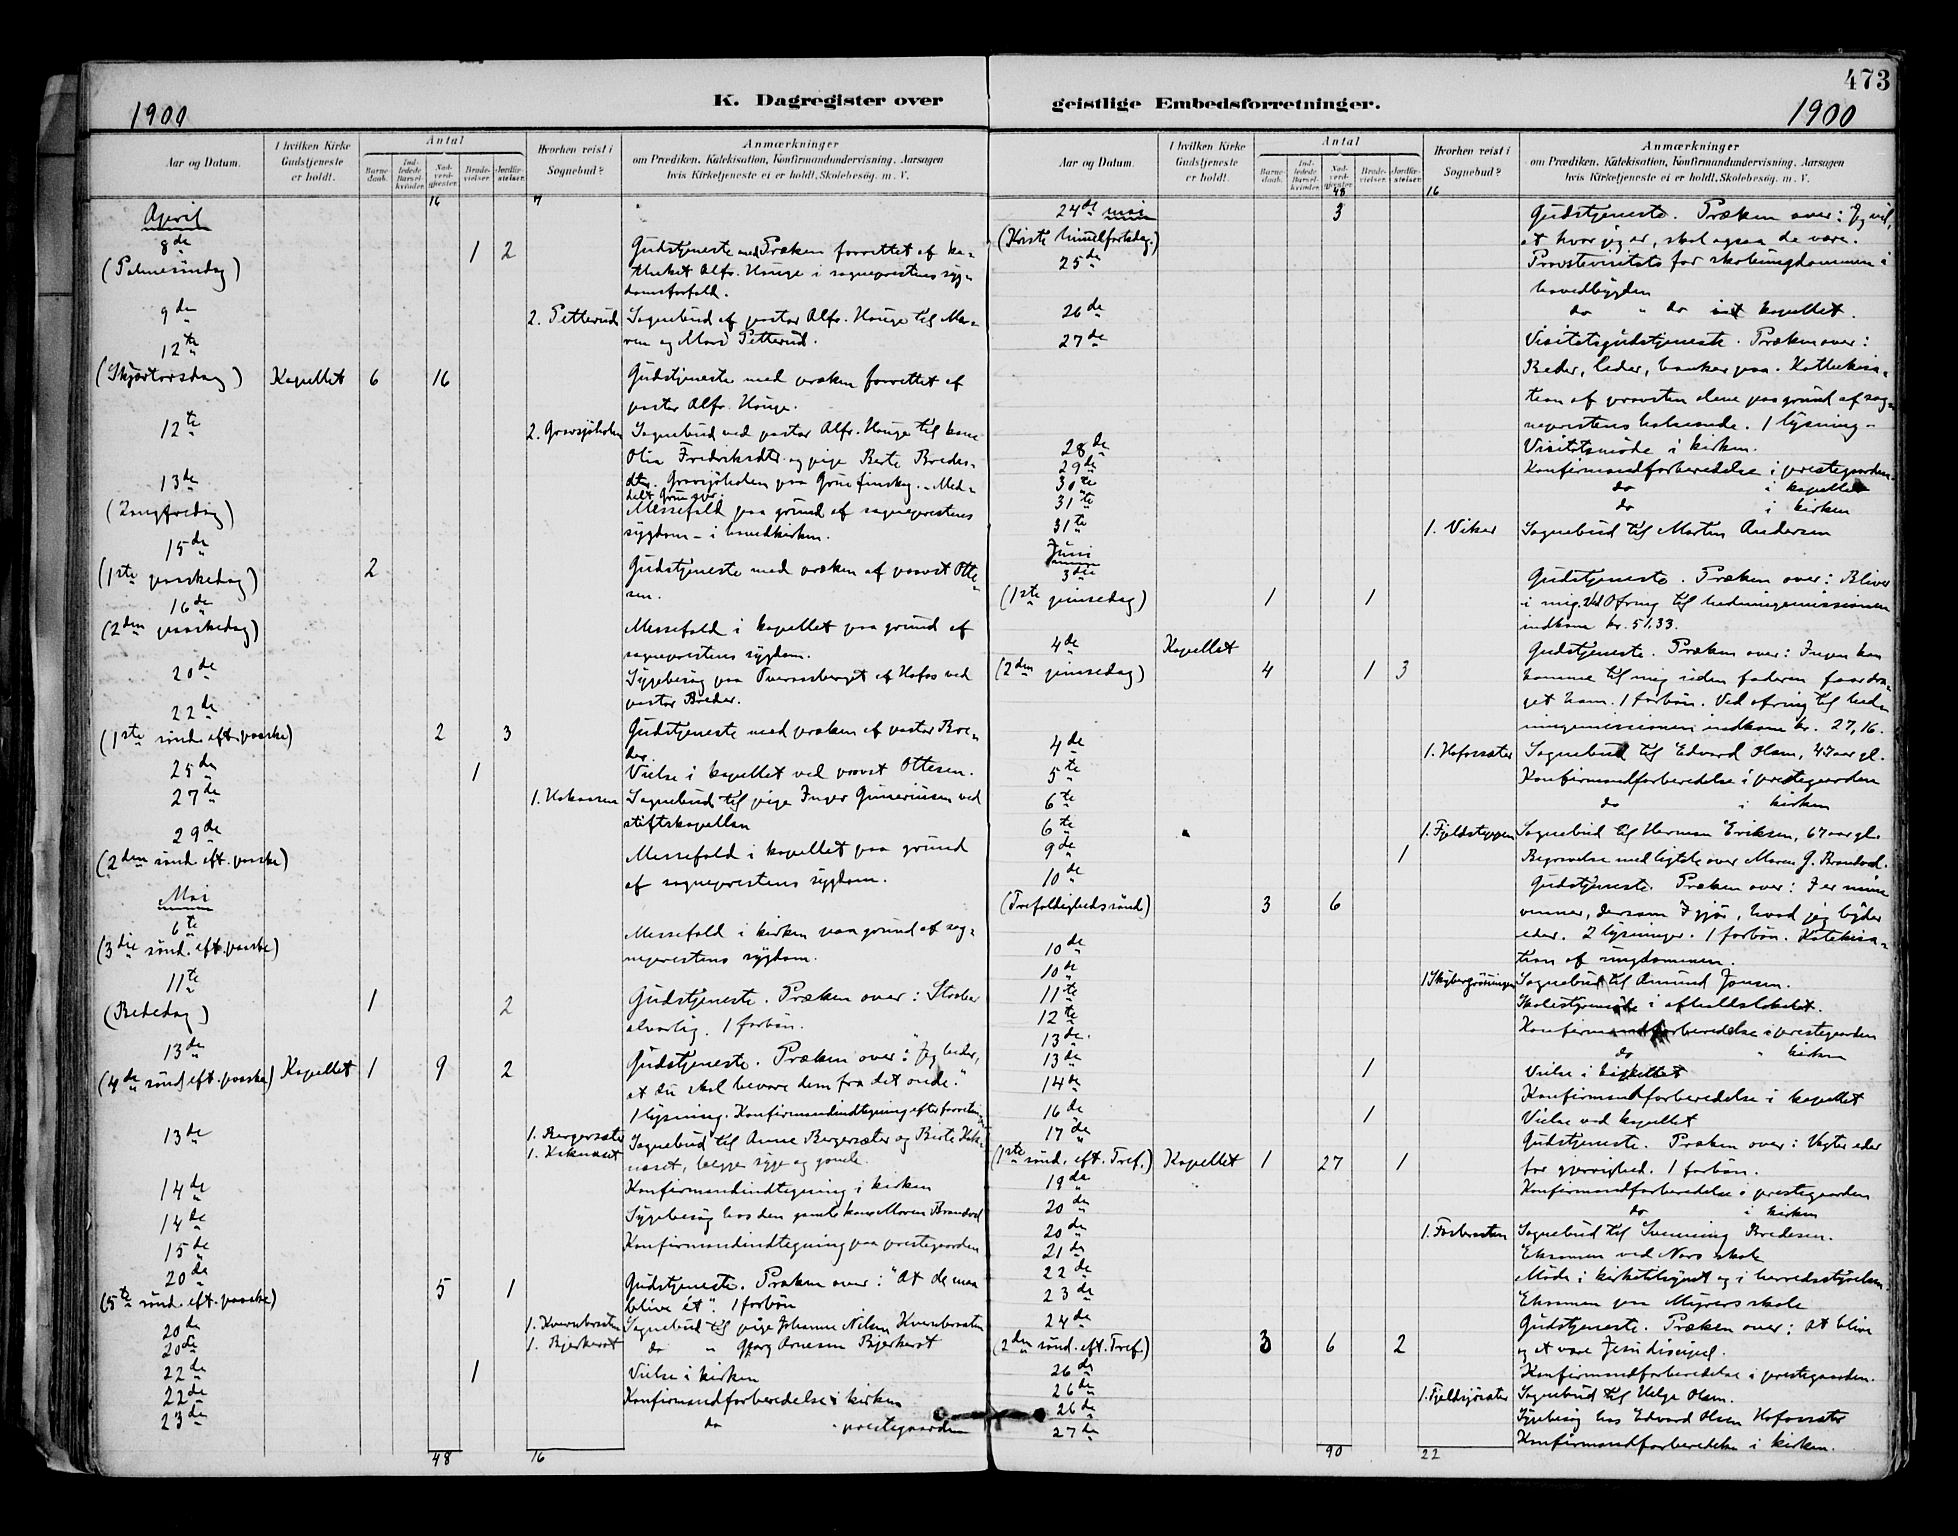 473
1900
K. Dagregister over
geistlige Embedsforretninger.
1900
Aar og Datum.
I hvilken Kirke Gudstjeneste er holdt.
Antal
Barnedaab.
Indledede Barselkvinder.
Nadverdgjester.
Brudevielser.
Jordfæstelser.
Hvorhen reist i Sognebud?
Anmærkninger
om Prædiken, Katekisation, Konfirmandundervisning, Aarsagen
hvis Kirketjeneste ei er holdt, Skolebesøg, m. V.
16 7
April
8de
(Palmesøndag) 1 2 Gudstjeneste med Præken forrettet af ka-
Alfr. Hauge i sogneprestens syg-
domsforfald.
9de 2. Petterud Sognebud af pastor Alfr. Hauge til Ma-
ren og Petterud.
12te
(Skjærtorsdag) Kapellet 6 16 Gudstjeneste med præken forrettet af
pastor Alfr. Hauge.
12te 2. Gravsjøholen Sognebud ved pastor Alfr. Hauge til kone
Olia Fredriksdtr. og pige Berte Bredes-
dtr. Gravsjøholen paa Grue finskog. - Med-
delt Grue spr.
13de
(Langfredag) Messefald paa grund af sogneprestens
sygdom - i hovedkirken.
15de
(1ste paaskedag) 2 Gudstjeneste med præken af provst Otte
sen.
16de
(2den paaskedag) Messefald i kapellet paa grund af
sogneprestens sygdom.
20de Sygebesøg paa af Hofos ved
pastor Breder.
22de
(1ste sønd. eft. paaske) 2 3 Gudstjeneste med præken af pastor Bre-
der.
25de 1 Vielse i kapellet ved provst Ottesen.
27de 1. Sognebud til pige Inger Guneriusen ved
stiftskapellan
29de
(2den sønd. eft. paaske) Messefald i kapellet paa grund
af sogneprestens sygdom.
Mai
6te
(3die sønd. eft. paaske) Messefald i kirken paa grund af sog-
neprestens sygdom.
11te
(Bededag) 1 2 Gudstjeneste. Præken over:
alvorlig. 1 forbøn.
13de
(4de sønd. eft. paaske) Kapellet 1 9 2 Gudstjeneste. Præken over: "Jeg beder,
at du skal bevare dem fra det onde."
1 lysning. Konfirmandindtegning efter forretning
13de 1. Bergersæter Sognebud til Anne Bergersæter og Birte Kok-
1. Koknæset næset, begge syge og gamle.
14de Konfirmandindtegning i kirken
14de Sygebesøg hos den gamle kone Maren Brandvol
15de Konfirmandindtegning paa prestegaarden
20de
(5te sønd. eft. paaske) 5 1 Gudstjeneste. Præken over: "At de maa
blive ét". 1 forbøn
20de 1. Kvernbraaten Sognebud til pige Johanne Nilsen Kvernbraaten
20de 1. Bjerkerot do " Georg Arnesen Bjerkerot
22de 1 Vielse i kirken
22de Konfirmandforberedelse i kirken
23de do - prestegaarden
48 16
Aar og Datum.
I hvilken Kirke Gudstjeneste er holdt.
Antal
Barnedaab.
Indledede Barselkvinder.
Nadverdgjester.
Brudevielser.
Jordfæstelser.
Hvorhen reist i Sognebud?
Anmærkninger
om Prædiken, Katekisation, Konfirmandundervisning, Aarsagen
hvis Kirketjeneste ei er holdt, Skolebesøg, m. V.
48 16
24de mai 3 Gudstjeneste. Præken over: Jeg vil,
(Kristi himmelfartsdag.) at hvor jeg er, skal ogsaa de være.
25de Provstevisitats for skoleungdommen i
hovedbygden
26de do " do ved kapellet.
27de Visitatsgudstjeneste. Præken over:
Beder, leder, banker paa. Kathekisa-
tion af provsten alene paa grund af sog-
neprestens halsonde. 1 lysning -
28de Visitatsmøde i kirken.
29de Konfirmandforberedelse i prestegaarden
30te do i kapellet
31te do i kirken
31te 1. Viker Sognebud til Martin Andersen
Juni
3die
(1ste pinsedag) 1 1 Gudstjeneste. Præken over: Bliver
i mig. Ved Ofring til hedningemissionen
indkom kr. 51.33.
4de Kapellet
(2den pinsedag) 4 1 3 Gudstjeneste. Præken over: Ingen kan
komme til mig uden faderen faar dra-
get ham. 1 forbøn. Ved ofring til hed-
ningemissionen indkom kr. 27,16.
4de 1. Hofossæter Sognebud til Edvard Olsen, 45 aar gl.
5te Konfirmandforberedelse i prestegaarden
6te do i kirken
6te 1. Fjeldstyggen Sognebud til Herman Eriksen, 67 aar gl.
9de 1 Begravelse med ligtale over Maren G. Brandvol.
10de
(Trefoldighedssønd) 3 6 Gudstjeneste. Præken over: I er mine
venner, dersom I gjør, hvad jeg byder
eder. 2 lysninger. 1 forbøn. Katekisa-
tion af ungdommen.
10de
10de 1 Sognebud til Amund Jonsen.
11te Skolestyremøde i
12te Konfirmandforberedelse i prestegaarden
13de. do " kirken
13de 1 Vielse i
14de Konfirmandforberedelse i kapellet
16de 1 Vielse ved kapellet
17de
(1ste sønd. eft. Tref.) Kapellet 1 27 1 Gudstjeneste. Præken over: Vogter eder
for gjerrighed. 1 forbøn.
19de Konfirmandforberedelse i prestegaarden
20de do i kirken
20de 1. Sognebud til Svenning Bredesen.
21de Eksamen ved Nars skole
22de Møde i kirketilsynet og i herredsstyrelsen
23de Eksamen paa Myrers skole
24de
(2den sønd. eft. Tref.) 3 6 2 Gudstjeneste. Præken over: At blive
og at være Jesu discipel.
26de Konfirmandforberedelse i prestegaarden.
26de 1. Fjeldsjøsæter Sognebud til Helge Olsen.
26de Sygebesøg hos Edvard Olsen Hofossæter
27de Konfirmandforberedelse i kirken.
90 22